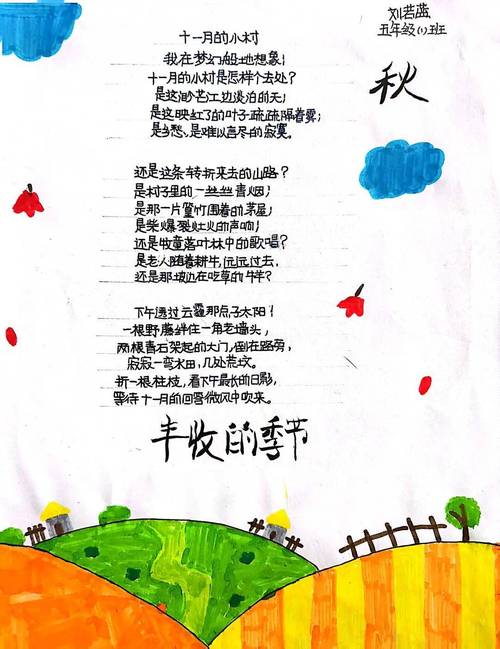 刘若菡
五年级(1)班
秋
十一月的小村
我在梦幻般地想象！
十一月的小村是怎样个去处？
是这渺茫江边淡泊的天；
是这映红了的叶子疏疏隔着雾；
是乡愁、是难以言尽的寂寞。
还是这条转折来去的山路？
是村子里的一丝丝青烟；
是那一片篁竹围着的茅屋；
是柴爆裂灶火的声响；
还是牧童落叶林中的歌唱？
是老人随着耕牛，远远过去，
还是那坡边在吃草的牛羊？
下午透过云霾那点子太阳！
一根野藤绊住一角老墙头，
两根青石架起的大门，倒在路旁，
寂寂一弯水田，几处荒坟。
折一根柱枝，看下午最长的日影，
等待十一月的回答微风中吹来。
丰收的季节